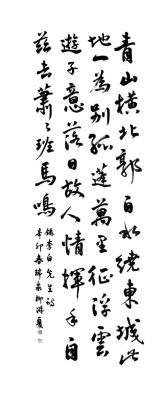 青山横北郭白水绕東城此
地一為别孤蓬萬里征浮雲
遊子意落日故人情揮手自
兹去蕭〻班馬鳴
録李白先生詩
辛卯春瑞泉柳